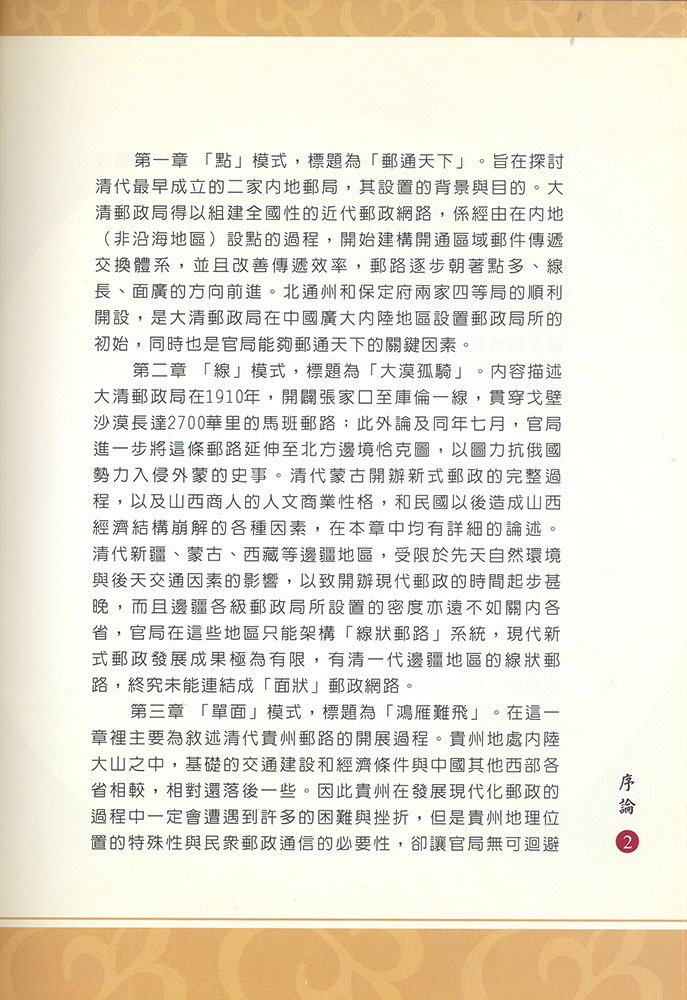 第一章 「點」模式，標題為「郵通天下」。旨在探討
清代最早成立的二家內地郵局，其設置的背景與目的。大
清郵政局得以組建全國性的近代郵政網路，係經由在內地
（非沿海地區）設點的過程，開始建構開通區域郵件傳遞
交換體系，並且改善傳遞效率，郵路逐步朝著點多、線
長、面廣的方向前進。北通州和保定府兩家四等局的順利
開設，是大清郵政局在中國廣大內陸地區設置郵政局所的
初始，同時也是官局能夠郵通天下的關鍵因素。
第二章 「線」模式，標題為「大漠孤騎」。內容描述
大清郵政局在1910年，開闢張家口至庫倫一線，貫穿戈壁
沙漠長達2700華里的馬班郵路；此外論及同年七月，官局
進一步將這條郵路延伸至北方邊境恰克圖，以圖力抗俄國
勢力入侵外蒙的史事。清代蒙古開辦新式郵政的完整過
程，以及山西商人的人文商業性格，和民國以後造成山西
經濟結構崩解的各種因素，在本章中均有詳細的論述。
清代新疆、蒙古、西藏等邊疆地區，受限於先天自然環境
與後天交通因素的影響，以致開辦現代郵政的時間起步甚
晚，而且邊疆各級郵政局所設置的密度亦遠不如關內各
省，官局在這些地區只能架構「線狀郵路」系統，現代新
式郵政發展成果極為有限，有清一代邊疆地區的線狀郵
路，終究未能連結成「面狀」郵政網路。
第三章 「單面」模式，標題為「鴻雁難飛」。在這一
章裡主要為敘述清代貴州郵路的開展過程。貴州地處內陸
大山之中，基礎的交通建設和經濟條件與中國其他西部各
省相較，相對還落後一些。因此貴州在發展現代化郵政的
過程中一定會遭遇到許多的困難與挫折，但是貴州地理位
置的特殊性與民眾郵政通信的必要性，卻讓官局無可迴避
序論
2